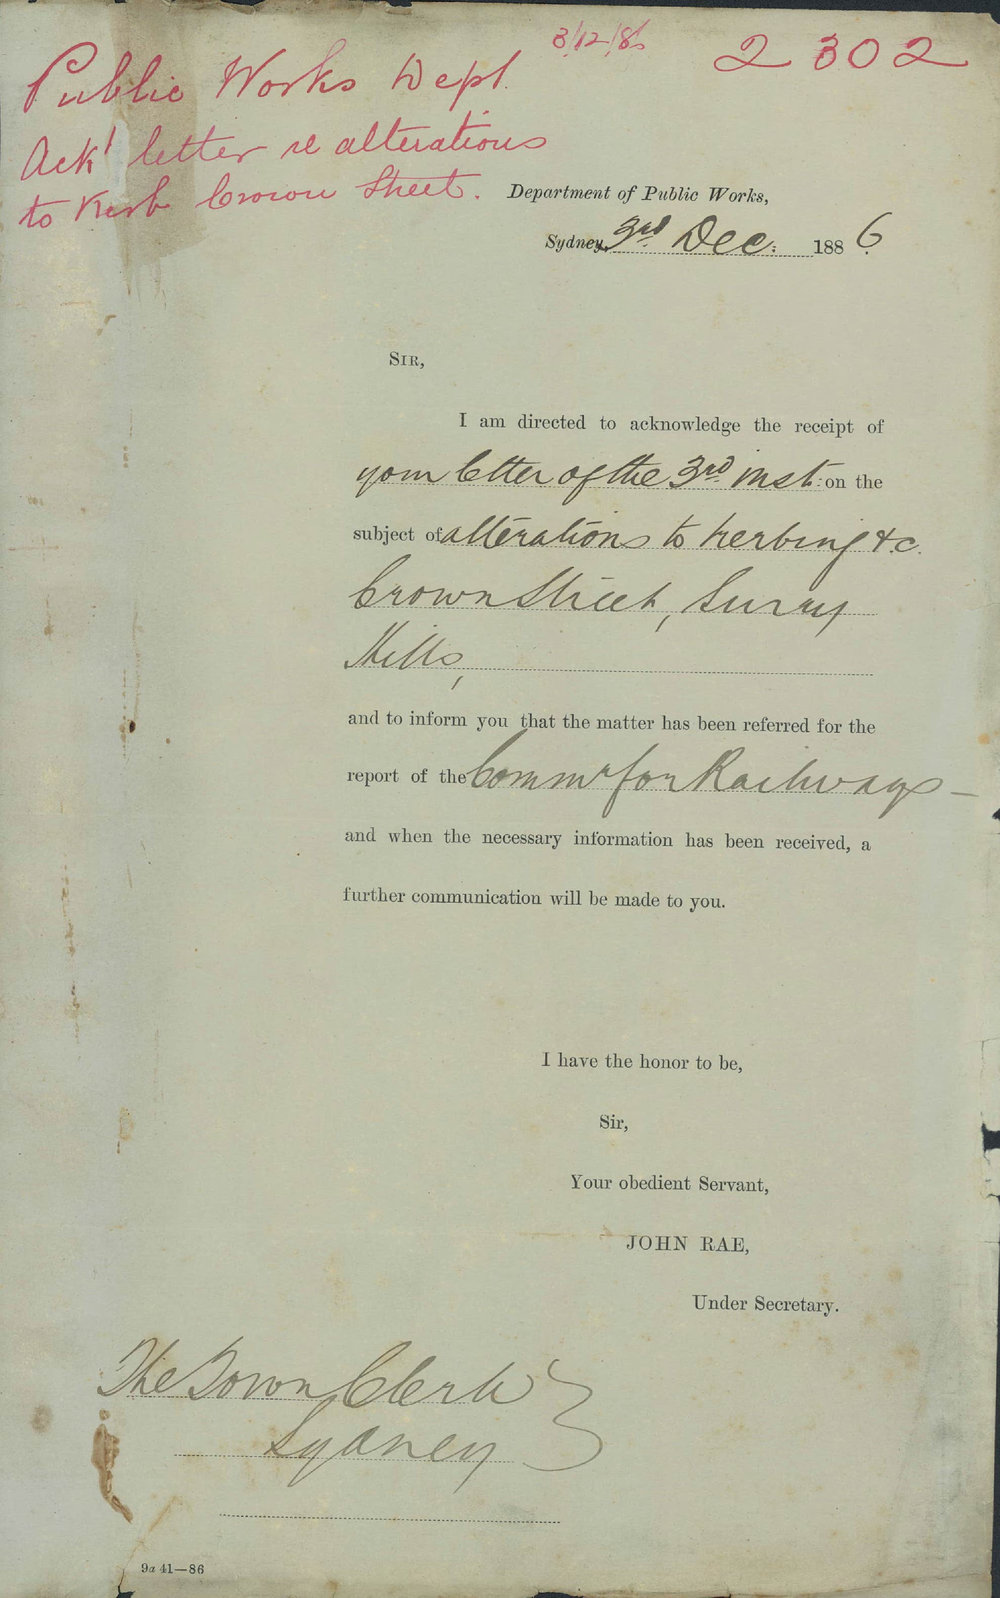 3/12/86
2302
Public Works Dept.
Ack' letter re alterations
to Kerb Crown Street.
Department of Public Works,
Sydney, 3rd Dec: 1886
SIR,
I am directed to acknowledge the receipt of
your letter of the 3rd inst: on the
subject of alterations to kerbing &c.
Crown Street, Surry
Hills,
and to inform you that the matter has been referred for the
report of the Commr for Railways —
and when the necessary information has been received, a
further communication will be made to you.
I have the honor to be,
Sir,
Your obedient Servant,
JOHN RAE,
Under Secretary.
The Town Clerk
Sydney
9a 41—86